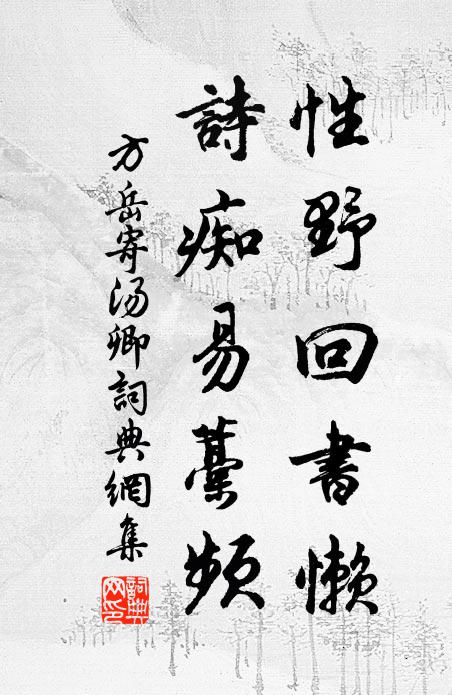 性野回書懶
詩痴易藁頻
方岳寄汤卿詞典網集
詞典